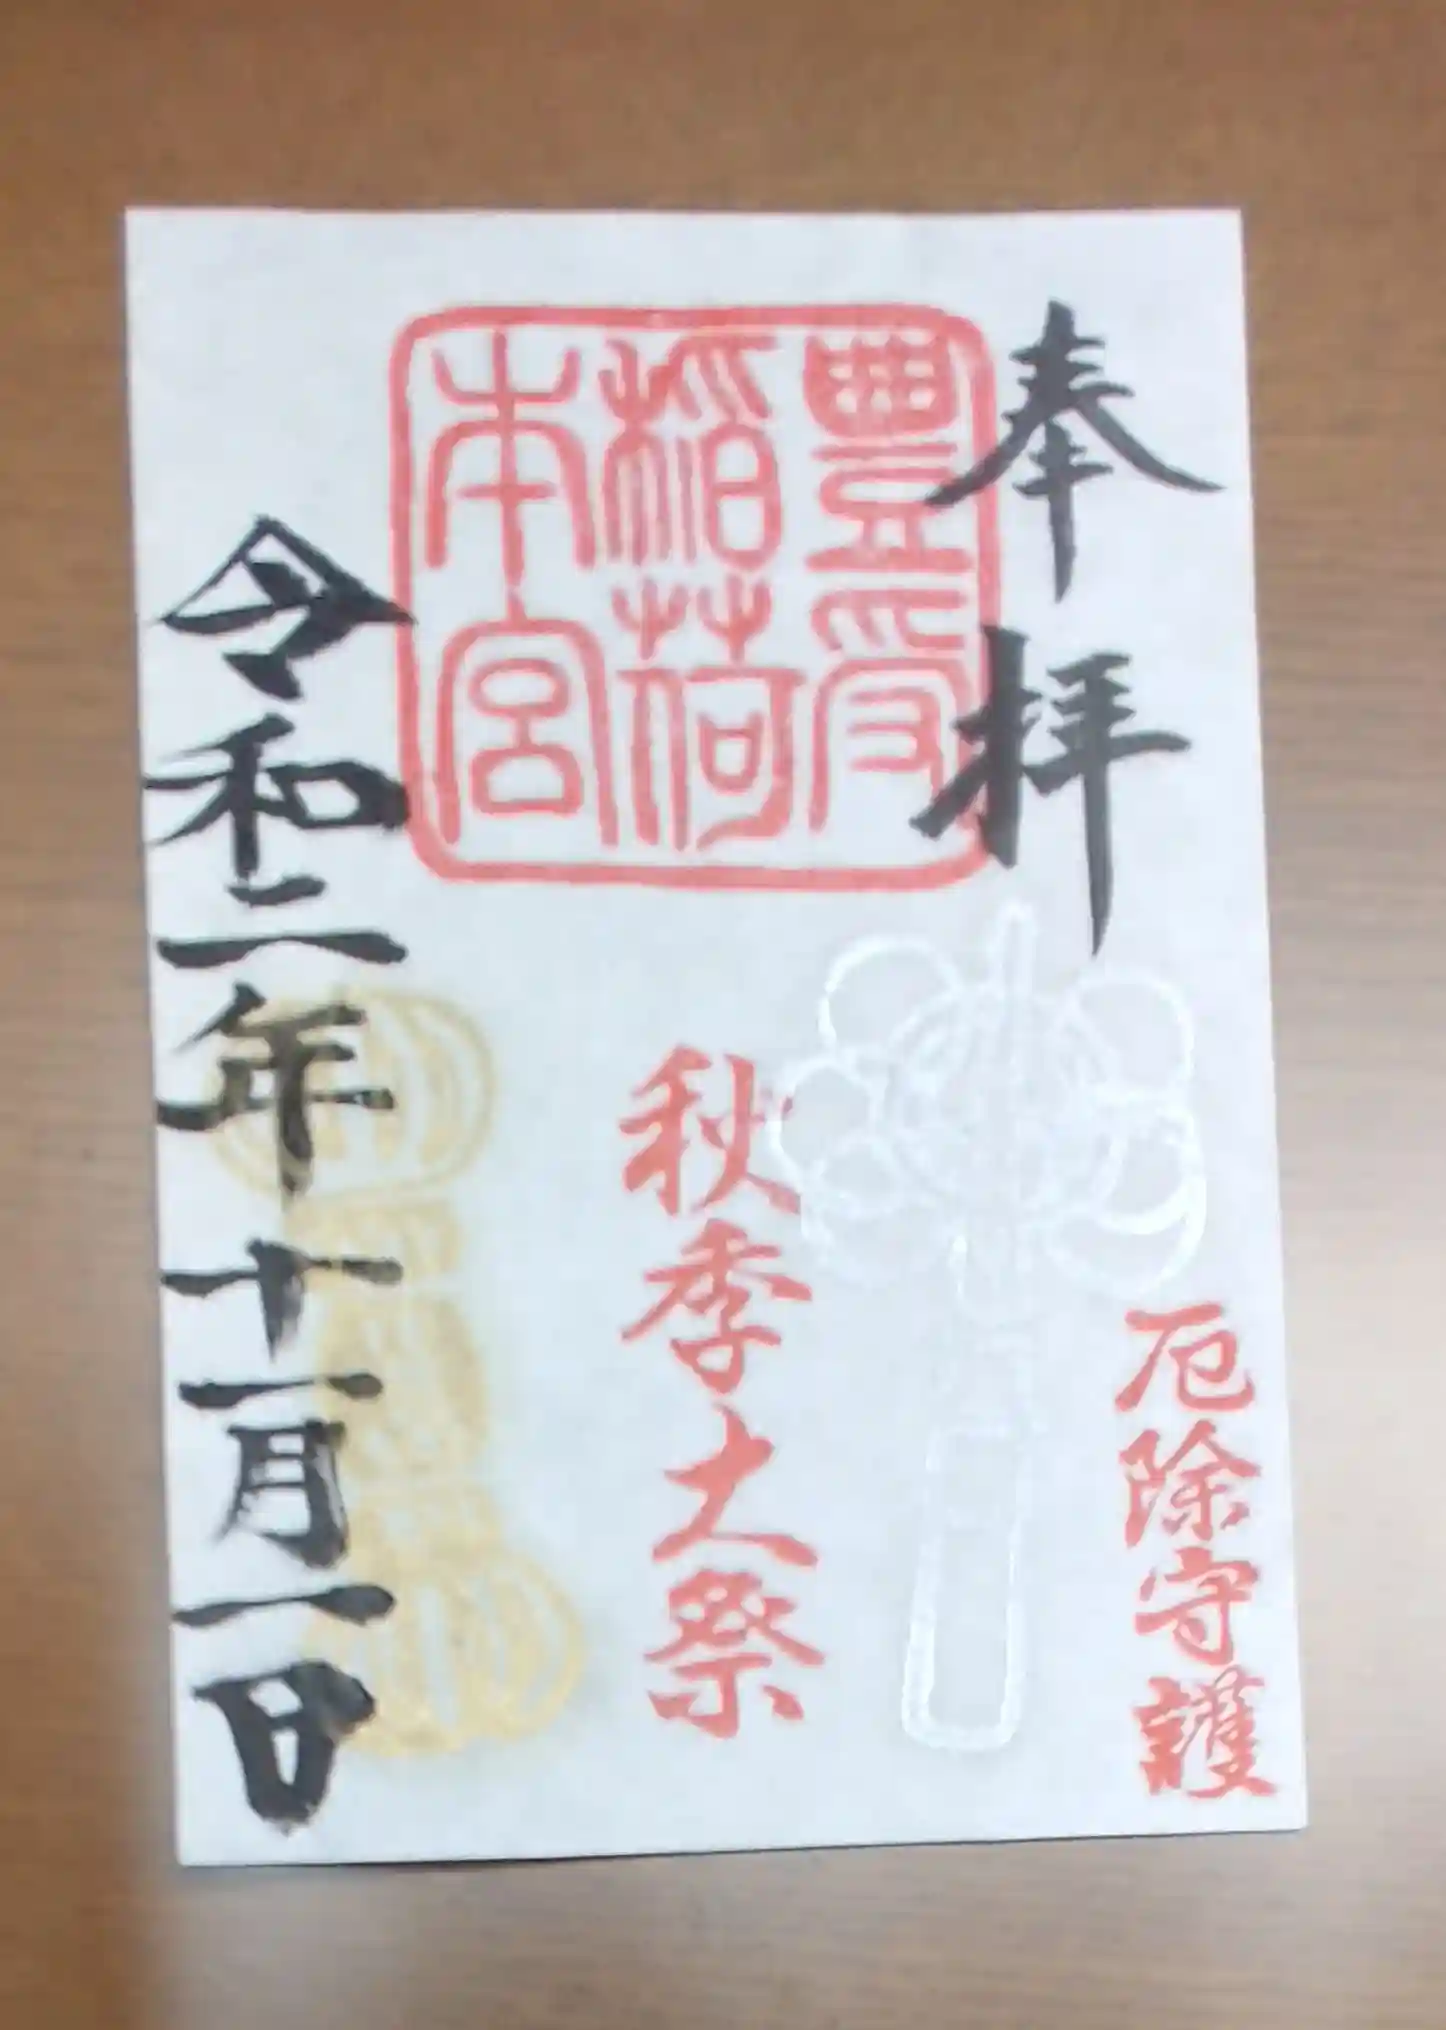 奉拝
厄除守護
豊受稲荷本宮
秋季大祭
令和二年十一月一日